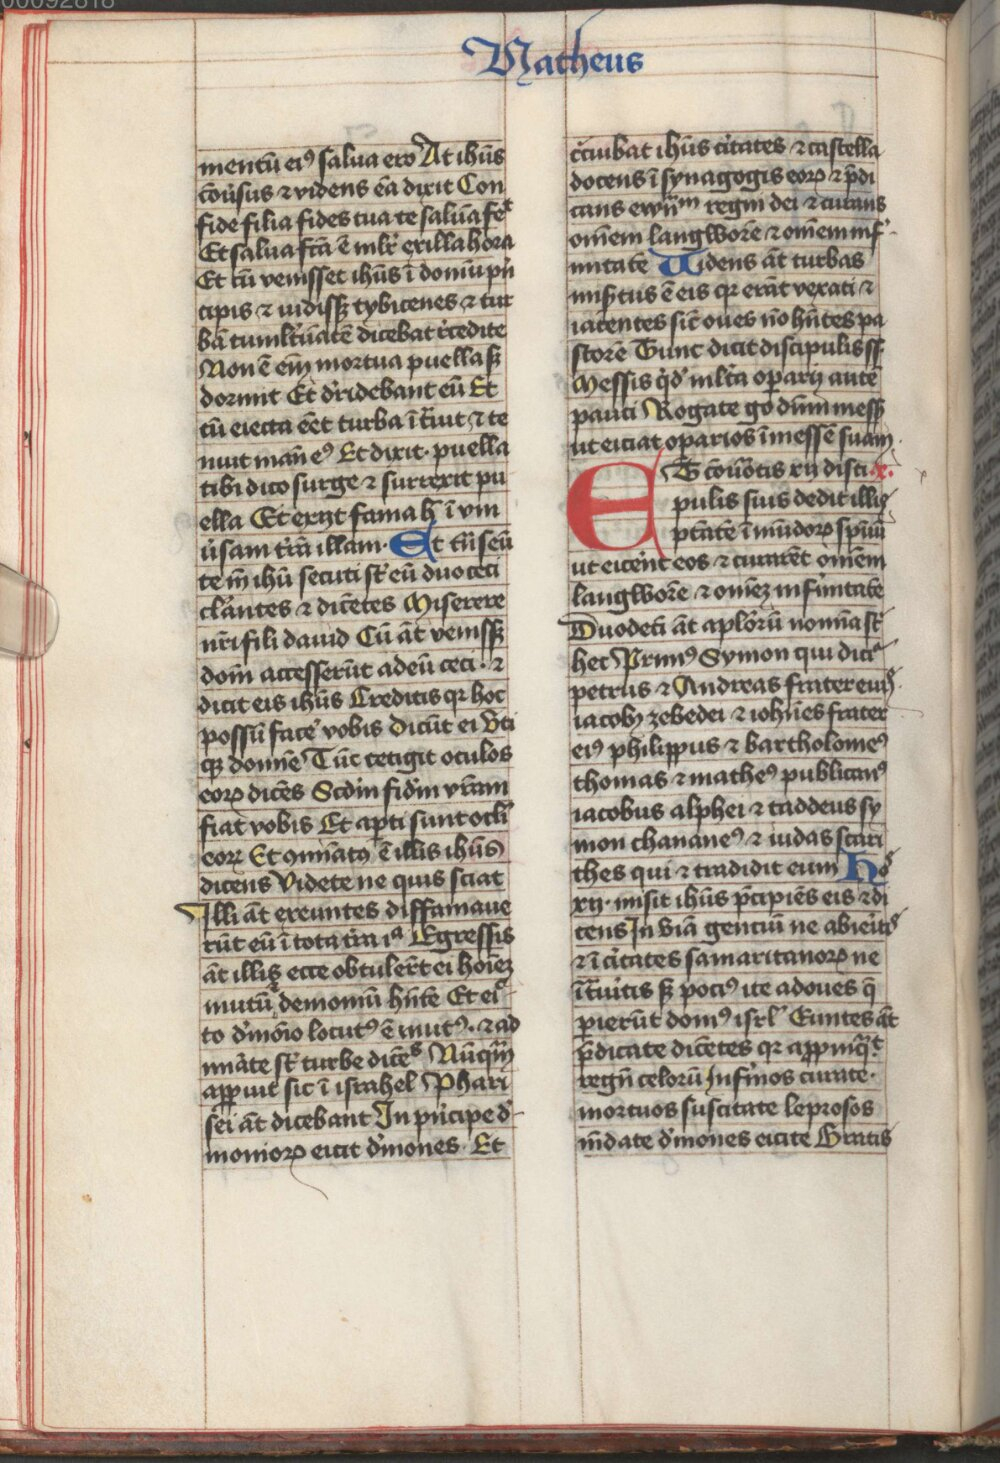 00092818
Matheus
mentū ei⁹ salua ero At ihūs
cōūsus ⁊ videns eā dixit Con
fide filia fides tua te saluā fēt
Et salua fcā ē mlr̄ ex illa hora
Et cū venisset ihūs ī domū pn̄
cipis ⁊ uidissꝫ tybicenes ⁊ tur
bā tumltuātē dicebat recedite
Non ē em̄ mortua puella sꝫ
dormit Et dridebant eū Et
cū eiecta eēt turba ītuit ⁊ te
nuit man̄ e⁹ Et dixit puella
tibi dico surge ⁊ surrexit pu
ella Et exijt fama h̄ ī vni
ūsam trā illam Et tn̄seū
te īn ihū secuti st̄ eū duo ceci
clāntes ⁊ dicētes Miserere
nrī fili dauid Cū āt venissꝫ
dom̄ accesserūt ad eū ceci ⁊
dicit eis ihūs Creditis qꝛ hoc
possū facē vobis Dicūt ei Vti
qꝫ domine Tūc tetigit oculos
eoꝝ dicēs Scdm fidm vrām
fiat vobis Et apti sunt ocli
eoꝝ Et ꝯminatꝰ ē illis ihūs
dicens Videte ne quis sciat
Illi āt exeuntes diffamaue
rūt eū ī tota trā ia Egressis
āt illis ecce obtulert ei hoīeꝫ
mutū demoniū hn̄tē Et eiec
to dmōio locut⁹ ē mut⁹ ⁊ ad
mirāte st̄ turbe dicēs Nūqm̄
apꝑuit sic ī israhel Phari
sei āt dicebant In pn̄cipe de
monioꝝ eicit dmones Et
cciubat ihūs citates ⁊ castella
docens ī synagogis eoꝝ ⁊ pdi
cans ewn̄m regni dei ⁊ curans
omēm langworē ⁊ omēm inf
mitatē Uidens āt turbas
misertus ē eis qꝛ erāt vexati ⁊
iacentes sic̄ oues nō hn̄tes pa
storē Tunc dicit discipulis ss
Messis qd mlta oparij autē
pauci Rogate go dn̄m messꝫ
ut eiciat oparios ī messē suam
ET cōuocatis xij disci x.
pulis suis dedit illis
ptātē īmūdoꝝ spiūū
ut eicēnt eos ⁊ curarēt omēm
langworē ⁊ omēꝫ infirmitatē
Duodeci āt aplorū nomīa st̄
hec Primꝰ Symon qui dicit
petrus ⁊ Andreas frater eiꝰ
iacobꝰ zebedei ⁊ iohn̄es frater
eiꝰ philippus ⁊ bartholomeꝰ
thomas ⁊ matheꝰ publicanꝰ
iacobus alphei ⁊ taddeus sy
mon chananeꝰ ⁊ iudas scari
thes qui ⁊ tradidit eum Hos
xij misit ihūs pcipiēs eis ⁊ di
cens In viā gentiū ne abieritꝭ
⁊ ī citates samaritanoꝝ ne
ītuitis sꝫ pociꝰ ite ad oues q̄
perierūt domꝰ isrl Euntes āt
pdicate dicētes qꝛ appinqt
regn̄ celorū Infirmos curate
mortuos suscitate leprosos
mdate dmones eicite Gratis